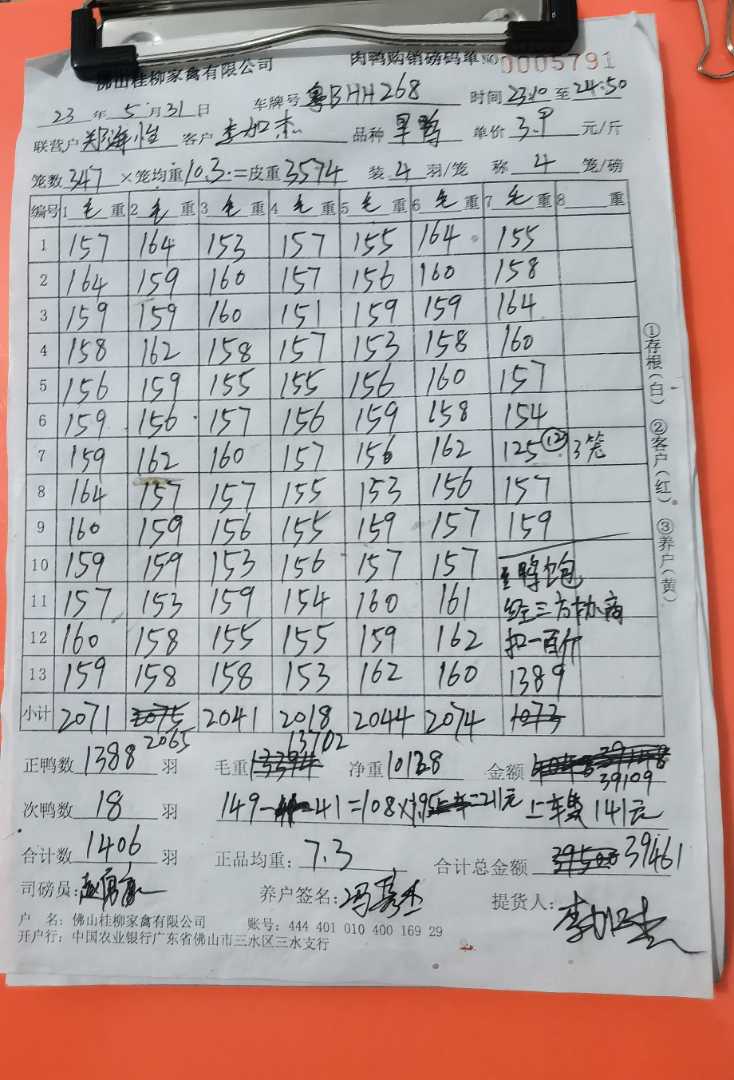 佛山桂柳家禽有限公司 肉鸭购销磅码单 NO 0005791
23年5月31日 车牌号 粤BHH268 时间 23:10 至 24:50
联营户 客户 李加杰 品种 旱鸭 单价 3. 元/斤
笼数 347 ×笼均重 10.3 =皮重 3574 装 4 羽/笼 称 4 笼/磅
编号 1 毛 重 2 毛 重 3 毛 重 4 毛 重 5 毛 重 6 毛 重 7 毛 重 8 重
1 157 164 153 157 155 164 155
2 164 159 160 157 156 160 158
3 159 159 160 151 159 159 164
4 158 162 158 157 153 158 160
5 156 159 155 155 156 160 157
6 159 156 157 156 159 158 154
7 159 162 160 157 156 162 125 ⑫ 3笼
8 164 157 157 155 153 156 157
9 160 159 156 155 159 157 159
10 159 159 153 156 157 157 鸭饱
11 157 153 159 154 160 161 经三方协商
12 160 158 155 155 159 162 扣一百斤
13 159 158 158 153 162 160 1389
小计 2071 2075 2041 2018 2044 2074 1073
2065 13702
正鸭数 1388 羽 毛重 13394 净重 10128 金额 39109
次鸭数 18 羽 149- -41=108×1.95 =211元 上车费 141元
合计数 1406 羽 正品均重: 7.3 合计总金额 39500 39461
司磅员: 养户签名: 提货人: 李加杰
户 名: 佛山桂柳家禽有限公司 账号: 444 401 010 400 169 29
开户行: 中国农业银行广东省佛山市三水区三水支行
①存根(白) ②客户(红) ③养户(黄)